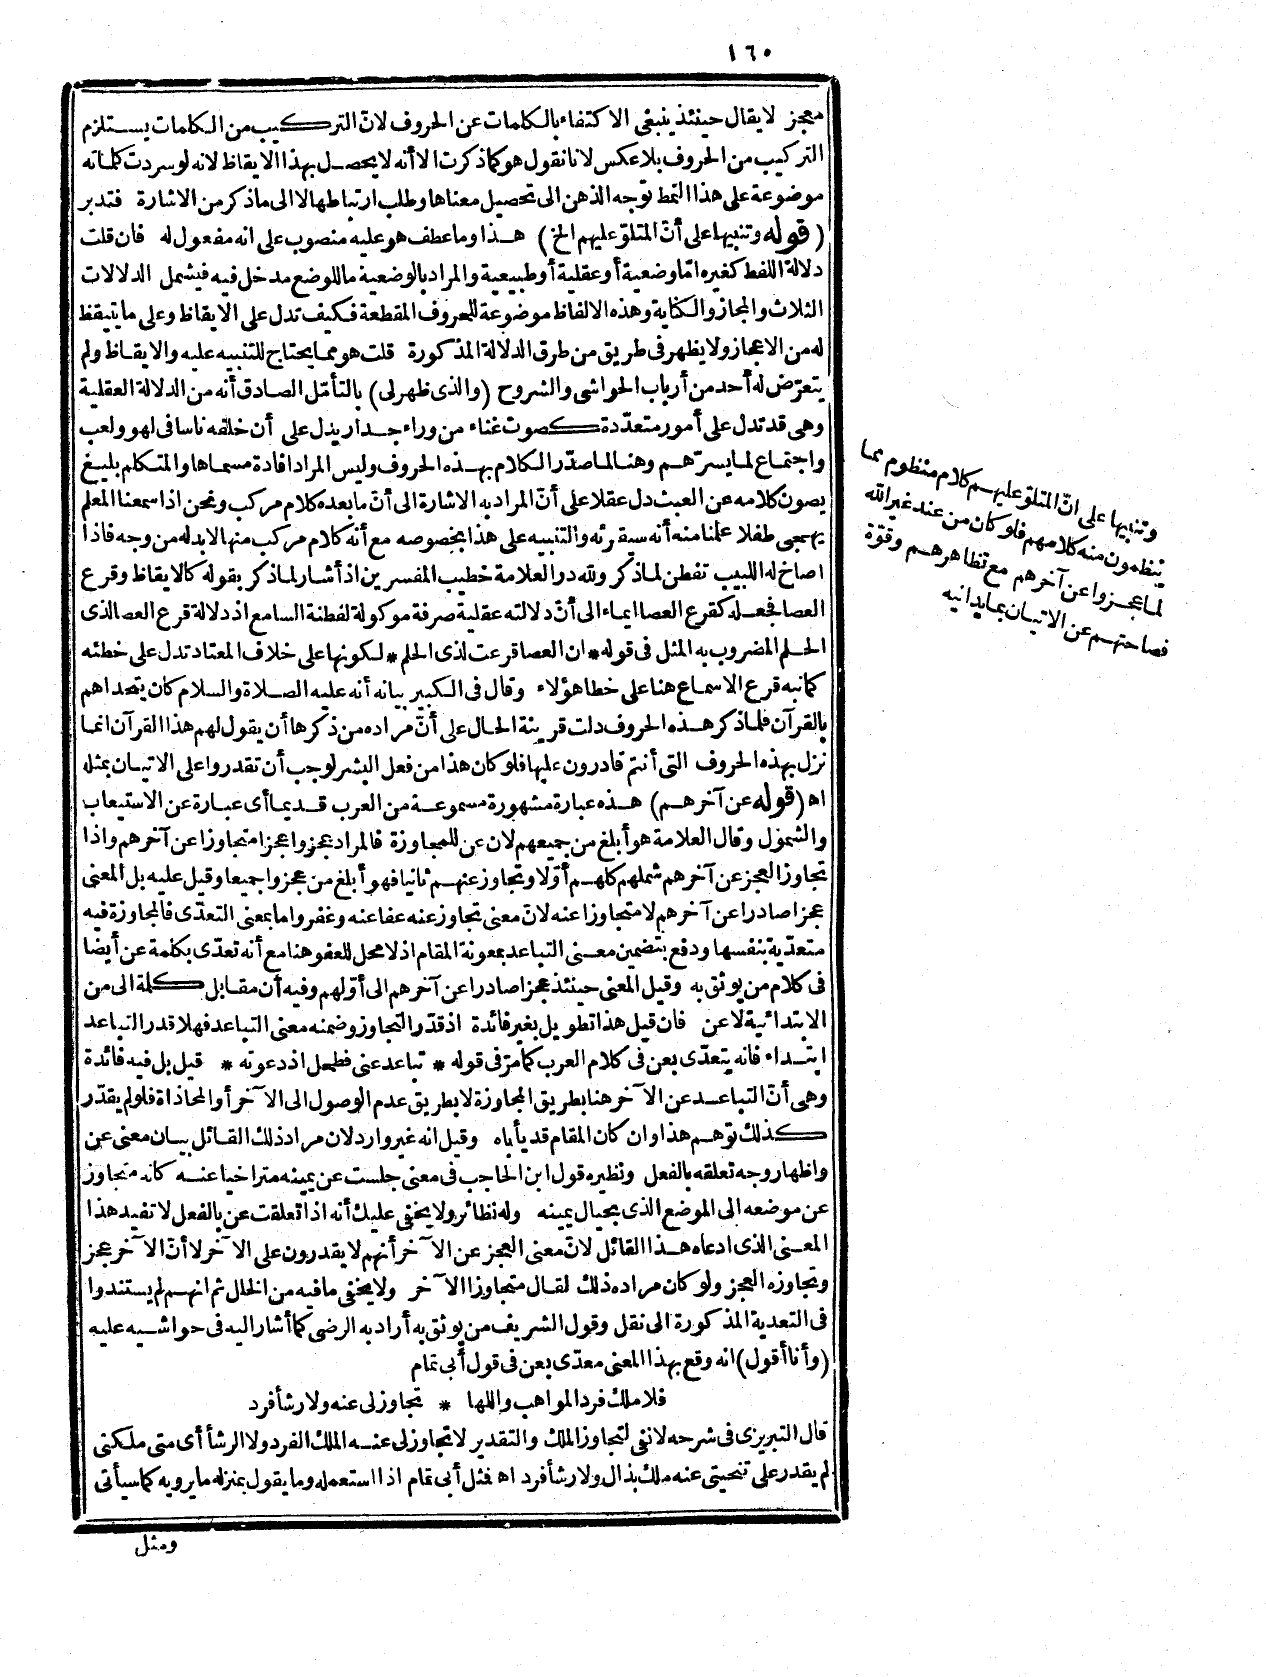 ١٦٠
معجز لا يقال حينئذ ينبغى الاكتفاء بالكلمات عن الحروف لانّ التركيب من الكلمات يستلزم
التركيب من الحروف بلا عكس لانا نقول هو كما ذكرت الا أنه لا يحصل بهذا الايقاظ لانه لو سردت كلماته
موضوعة على هذا النمط توجه الذهن الى تحصيل معناها وطلب ارتباطها لا الى ما ذكر من الاشارة فتدبر
(قوله وتنبيها على أنّ المتلوّ عليهم الخ) هذا وما عطف هو عليه منصوب على انه مفعول له فان قلت
دلالة اللفظ كغيره امّا وضعية أو عقلية أو طبيعية والمراد بالوضعية ما للوضع مدخل فيه فيشمل الدلالات
الثلاث والمجاز والكناية وهذه الالفاظ موضوعة للحروف المقطعة فكيف تدل على الايقاظ وعلى ما يتيقظ
له من الاعجاز ولا يظهر فى طريق من طرق الدلالة المذكورة قلت هو مما يحتاج للتنبيه عليه والايقاظ ولم
يتعرّض له أحد من أرباب الحواشى والشروح (والذى ظهر لى) بالتأمّل الصادق أنه من الدلالة العقلية
وهى قد تدل على أمور متعدّدة كصوت غناء من وراء جدار يدل على أن خلفه ناسا فى لهو ولعب
واجتماع لما يسرّهم وهنا لما صدّر الكلام بهذه الحروف وليس المراد افادة مسماها والمتكلم بليغ
يصون كلامه عن العبث دل عقلا على أنّ المراد به الاشارة الى أنّ ما بعده كلام مركب ونحن اذا سمعنا المعلم
يهجى طفلا علمنا منه أنه سيقرئه والتنبيه على هذا بخصوصه مع أنه كلام مركب منها لابد له من وجه فاذا
اصاخ له اللبيب تفطن لما ذكر ولله در العلامة خطيب المفسرين اذ أشار لما ذكر بقوله كالايقاظ وقرع
العصا فجعله كقرع العصا ايماء الى أنّ دلالته عقلية صرفة موكولة لفطنة السامع اذ دلالة قرع العصا لذى
الحلم المضروب به المثل فى قوله * ان العصا قرعت لذى الحلم * لكونها على خلاف المعتاد تدل على خطئه
كما نبه قرع الاسماع هنا على خطا هؤلاء وقال فى الكبير بيانه أنه عليه الصلاة والسلام كان يتحداهم
بالقرآن فلما ذكر هذه الحروف دلت قرينة الحال على أنّ مراده من ذكرها أن يقول لهم هذا القرآن انما
نزل بهذه الحروف التى أنتم قادرون عليها فلو كان هذا من فعل البشر لوجب أن تقدروا على الاتيان بمثله
اه (قوله عن آخرهم) هذه عبارة مشهورة مسموعة من العرب قديما أى عبارة عن الاستيعاب
والشمول وقال العلامة هو أبلغ من جميعهم لان عن للمجاوزة فالمراد عجزوا عجزا متجاوزا عن آخرهم واذا
تجاوز العجز عن آخرهم شملهم كلهم أوّلا وتجاوز عنهم ثانيا فهو أبلغ من عجزوا جميعا وقيل عليه بل المعنى
عجزا صادرا عن آخرهم لا متجاوزا عنه لانّ معنى تجاوز عنه عفا عنه وغفر وا ما بمعنى التعدّى فالمجاوزة فيه
متعدّية بنفسها ودفع بتضمين معنى التباعد بمعونة المقام اذ لا محل للعفو هنا مع أنه تعدّى بكلمة عن أيضا
فى كلام من يوثق به وقيل المعنى حينئذ عجزا صادرا عن آخرهم الى أوّلهم وفيه أن مقابل كلمة الى من
الابتدائية لا عن فان قيل هذا تطويل بغير فائدة اذ قدّر التجاوز وضمنه معنى التباعد فهلا قدر التباعد
ابتداء فانه يتعدّى بعن فى كلام العرب كما مرّ فى قوله * تباعد عنى فطحل اذ دعوته * قيل بل فيه فائدة
وهى أنّ التباعد عن الآخر هنا بطريق المجاوزة لا بطريق عدم الوصول الى الآخر أو المحاذاة فلو لم يقدّر
كذلك توهم هذا وان كان المقام قد يأباه وقيل انه غير وارد لان مراد ذلك القائل بيان معنى عن
واظهار وجه تعلقه بالفعل ونظيره قول ابن الحاجب فى معنى جلست عن يمينه متراخيا عنه كانه متجاوز
عن موضعه الى الموضع الذى بحيال يمينه وله نظائر ولا يخفى عليك أنه اذا تعلقت عن بالفعل لا تفيد هذا
المعنى الذى ادعاه هذا القائل لانّ معنى العجز عن الآخر أنهم لا يقدرون على الآخر لا أنّ الآخر عجز
وتجاوزه العجز ولو كان مراده ذلك لقال متجاوزا الآخر ولا يخفى ما فيه من الخلل ثم انهم لم يستندوا
فى التعدية المذكورة الى نقل وقول الشريف من يوثق به أراد به الرضى كما أشار اليه فى حواشيه عليه
(وأنا أقول) انه وقع بهذا المعنى معدّى بعن فى قول أبى تمام
فلا ملك فرد المواهب واللها * تجاوز لى عنه ولا رشأ فرد
قال التبريزى فى شرحه لا نفى لتجاوز الملك والتقدير لا تجاوز لى عنه الملك الفرد ولا الرشأ أى متى ملكنى
لم يقدر على تنحيتى عنه ملك بذال ولا رشأ فرد اه فمثل أبى تمام اذا استعمله وما يقول بمنزله ما يرويه كما سيأتى
ومثل
وتنبيها على انّ المتلوّ عليهم كلام منظوم مما
ينظمون منه كلامهم فلو كان من عند غير الله
لما عجزوا عن آخرهم مع تظاهرهم وقوّة
فصاحتهم عن الاتيان بما يدانيه